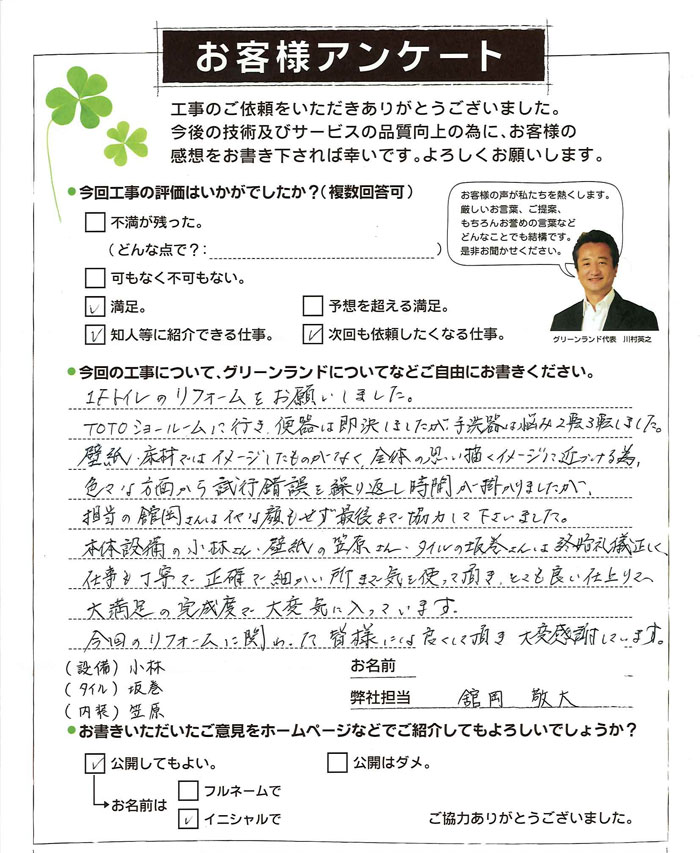 お客様アンケート
工事のご依頼をいただきありがとうございました。
今後の技術及びサービスの品質向上の為に、お客様の
感想をお書き下されば幸いです。よろしくお願いします。
●今回工事の評価はいかがでしたか?(複数回答可)
お客様の声が私たちを熱くします。
厳しいお言葉、ご提案、
もちろんお誉めの言葉など
どんなことでも結構です。
是非お聞かせください。
不満が残った。
(どんな点で?: )
可もなく不可もない。
満足。
予想を超える満足。
知人等に紹介できる仕事。
次回も依頼したくなる仕事。
グリーンランド代表 川村英之
●今回の工事について、グリーンランドについてなどご自由にお書きください。
1Fトイレのリフォームをお願いしました。
TOTOショールームに行き、便器は即決しましたが手洗器は悩み2転3転しました。
壁紙・床材ではイメージしたものがなく、全体の思い描くイメージに近づける為、
色々な方面から試行錯誤を繰り返し時間が掛かりましたが、
担当の舘岡さんはイヤな顔もせず最後まで協力して下さいました。
本体設備の小林さん・壁紙の笠原さん・タイルの坂巻さんは終始礼儀正しく、
仕事も丁寧で正確で細かい所まで気を使って頂き、とても良い仕上りで、
大満足の完成度で大変気に入っています。
今回のリフォームに関わった皆様には良くして頂き大変感謝しています。
(設備) 小林
(タイル) 坂巻
(内装) 笠原
お名前
弊社担当 舘岡 敬大
●お書きいただいたご意見をホームページなどでご紹介してもよろしいでしょうか?
公開してもよい。
公開はダメ。
お名前は
フルネームで
イニシャルで
ご協力ありがとうございました。